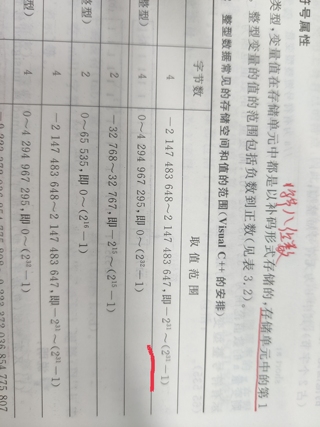 符号属性
类型,变量值在存储单元中都是以补码形式存储的,存储单元中的第1
整型变量的值的范围包括负数到正数(见表 3.2)。
整型数据常见的存储空间和值的范围(Visual C++ 的安排)
字节数 取 值 范 围
4 −2 147 483 648～2 147 483 647,即 −2³¹～(2³¹−1)
整型) 4 0～4 294 967 295,即 0～(2³²−1)
2 −32 768～32 767,即 −2¹⁵～(2¹⁵−1)
整型) 2 0～65 535,即 0～(2¹⁶−1)
4 −2 147 483 648～2 147 483 647,即 −2³¹～(2³¹−1)
型) 4 0～4 294 967 295,即 0～(2³²−1)
036 854 775 807